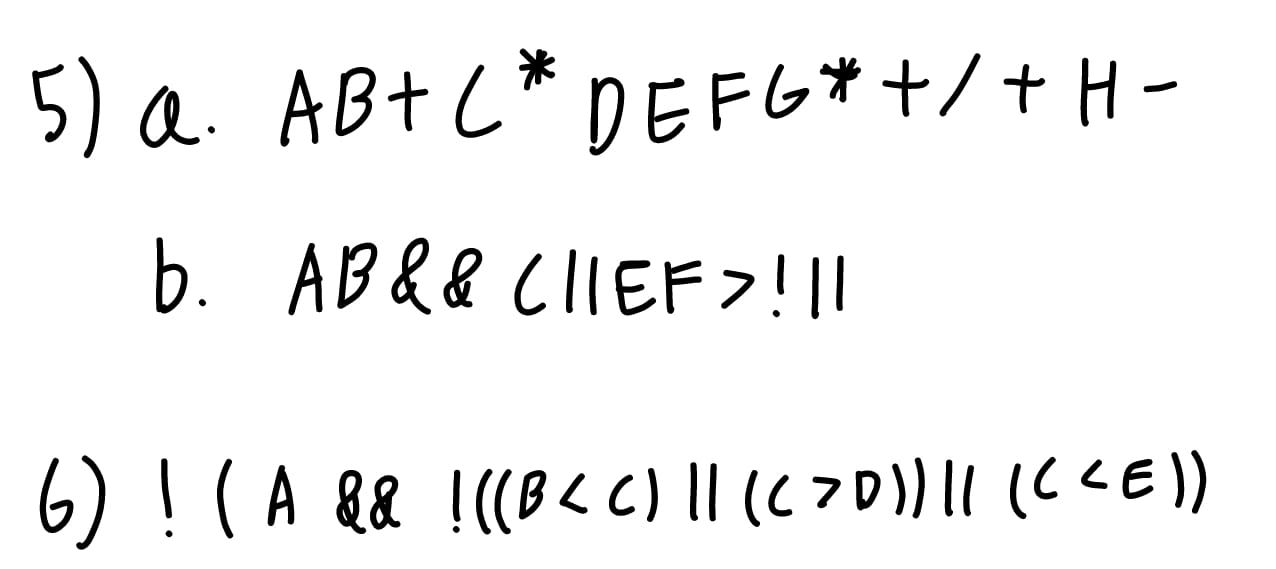 5) a. AB+C*DEFG*+/+H-
b. AB&&C||EF>!||
6) !(A && !((B<C)||(C>D))||(C<E))